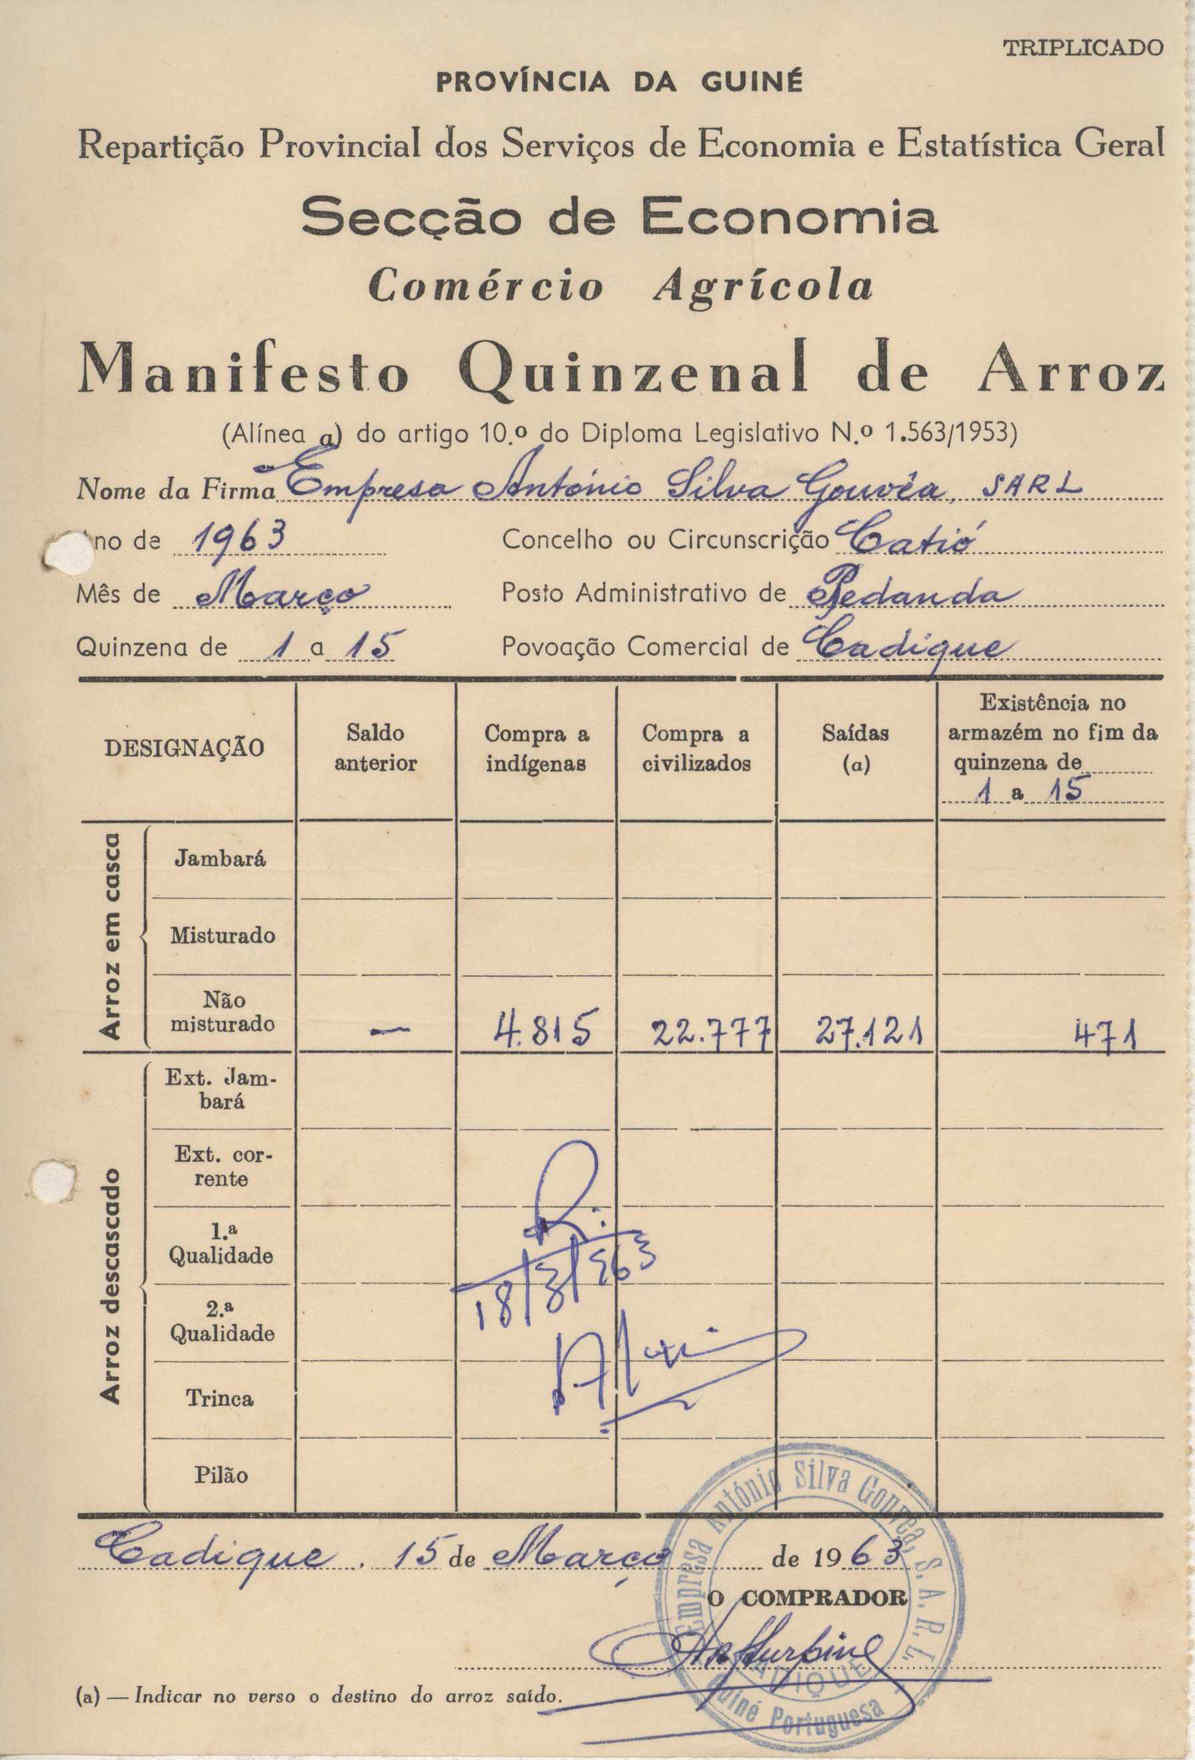 TRIPLICADO
PROVÍNCIA DA GUINÉ
Repartição Provincial dos Serviços de Economia e Estatística Geral
Secção de Economia
Comércio Agrícola
Manifesto Quinzenal de Arroz
(Alínea a) do artigo 10.º do Diploma Legislativo N.º 1.563/1953)
Nome da Firma Empresa António Silva Gouvêa, SARL
no de 1963 Concelho ou Circunscrição Catió
Mês de Março Posto Administrativo de Bedanda
Quinzena de 1 a 15 Povoação Comercial de Cadique
DESIGNAÇÃO
Saldo anterior
Compra a indígenas
Compra a civilizados
Saídas (a)
Existência no armazém no fim da quinzena de 1 a 15
Arroz em casca
Jambará
Misturado
Não misturado — 4.815 22.777 27.121 471
Arroz descascado
Ext. Jam-
bará
Ext. cor-
rente
1.ª Qualidade
2.ª Qualidade
Trinca
Pilão
R.
18/3/963
Cadique, 15 de Março de 1963
O COMPRADOR
Empresa António Silva Gouvea, S. A. R. L.
CADIQUE
Guiné Portuguesa
(a) — Indicar no verso o destino do arroz saído.